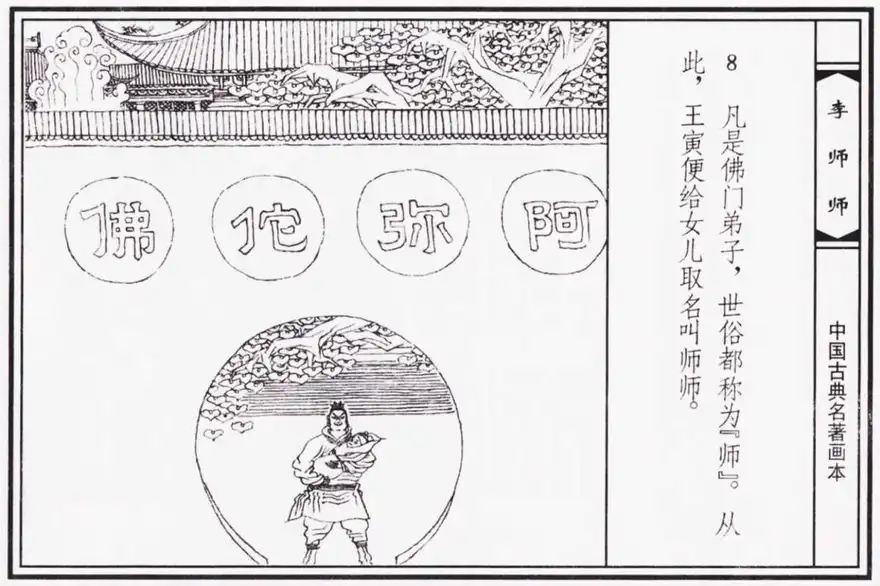 李师师
中国古典名著画本
8 凡是佛门弟子，世俗都称为『师』。从
此，王寅便给女儿取名叫师师。
阿弥佗佛